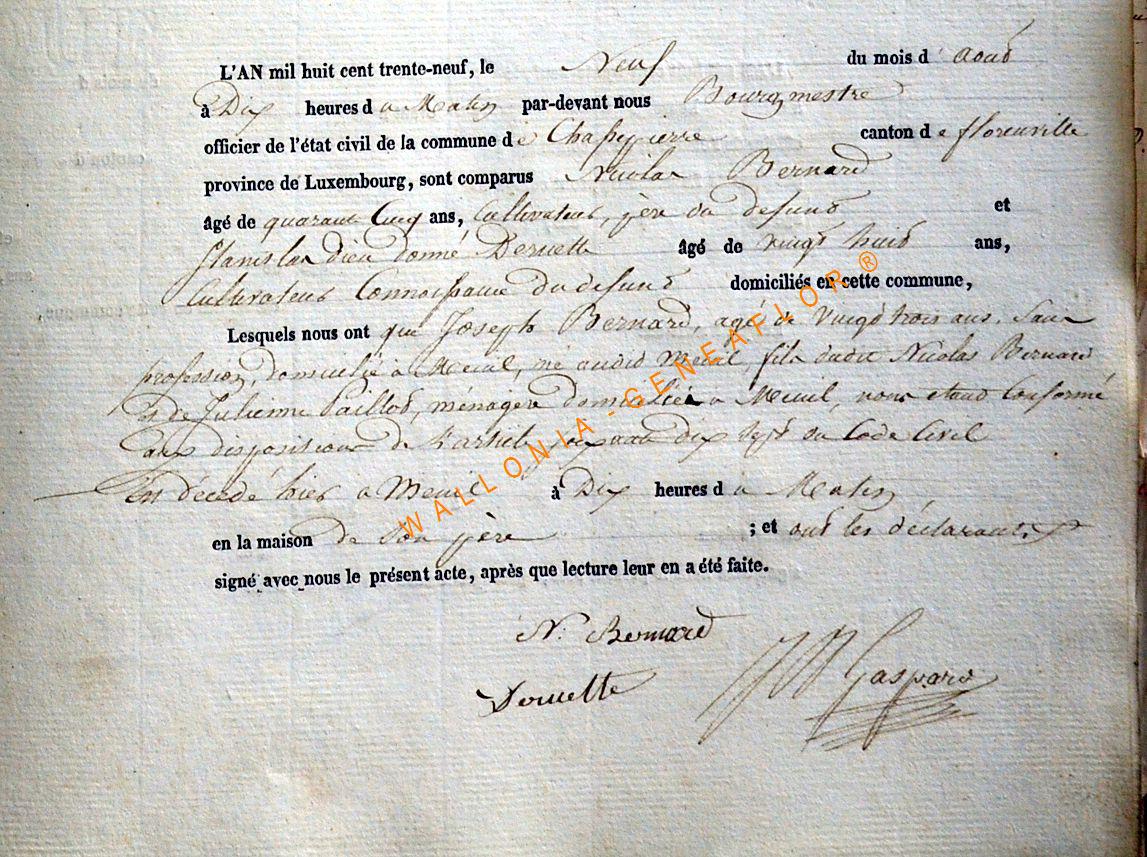 L'AN mil huit cent trente-neuf, le Neuf du mois d'aout
à Dix heures du Matin par-devant nous Bourgmestre
officier de l'état civil de la commune de canton de florenville
province de Luxembourg, sont comparus Nicolas Bernard
âgé de quarante Cinq ans, Cultivateur, père du defunt et
Stanislas dieu donné âgé de vingt huit ans,
Cultivateur Connoissance du defunt domiciliés en cette commune,
Lesquels nous ont que Joseph Bernard, agé de vingt trois ans, Sans
profession, domicilié à né audit fils dudit Nicolas Bernard
et de Julienne ménagère domiciliée à nous etant Conformé
aux dispositions de L'article dix Sept du Code Civil
Est décédé hier a à Dix heures du Matin,
en la maison de Son père ; et ont les déclarants
signé avec nous le présent acte, après que lecture leur en a été faite.
N. Bernard
Gaspard
WALLONIA-GENEAFLOR ®